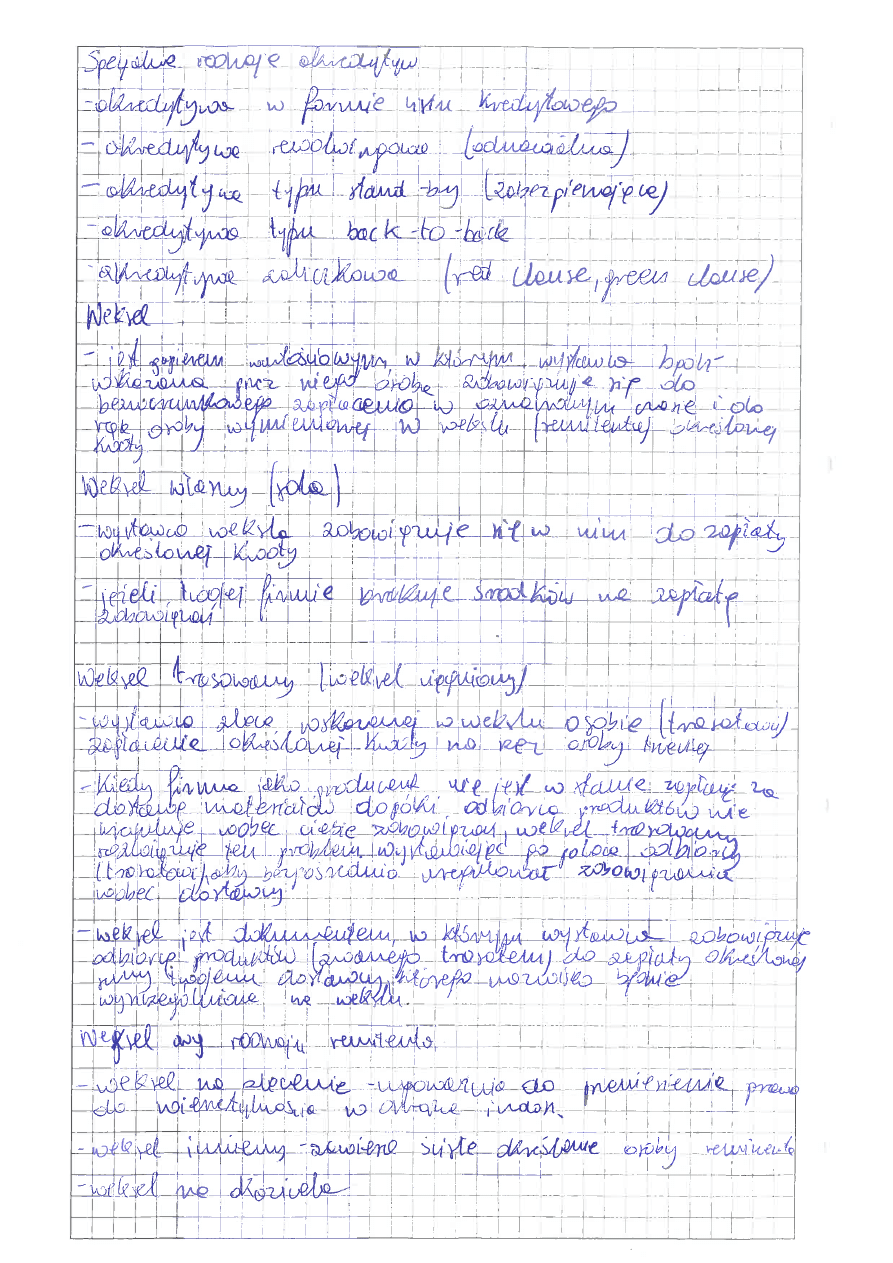 Specjalne rodzaje akredytyw
- akredytywa w formie listu kredytowego
- akredytywa rewolwingowa (odnawialna)
- akredytywa typu stand-by (zabezpieczająca)
- akredytywa typu back-to-back
- akredytywa zaliczkowa (red clause, green clause)
Weksel
- jest papierem wartościowym, w którym wystawca bądź
wskazana przez niego osoba zobowiązuje się do
bezwarunkowego zapłacenia w oznaczonym czasie i do
rąk osoby wymienionej w wekslu (remitenta) określonej
kwoty
Weksel własny (sola)
- wystawca weksla zobowiązuje się w nim do zapłaty
określonej kwoty
- jeżeli twojej firmie brakuje środków na zapłatę
zobowiązań
Weksel trasowany (weksel ciągniony)
- wystawca zleca wskazanej w wekslu osobie (trasatowi)
zapłacenie określonej kwoty na rzecz osoby trzeciej
- Kiedy firma jako producent nie jest w stanie zapłacić za
dostawę materiałów dopóki odbiorca produktów nie
ureguluje wobec ciebie zobowiązań, weksel trasowany
rozwiązuje ten problem, wystawiając go poleca odbiorcy
(trasatowi), aby bezpośrednio uregulował zobowiązania
wobec dostawcy.
- weksel jest dokumentem, w którym wystawca zobowiązuje
odbiorcę produktów (zwanego trasatem) do zapłaty określonej
sumy twojemu dostawcy, którego nazwisko będzie
wyszczególnione na wekslu.
Weksel wg rodzaju remitenta
- weksel na zlecenie - upoważnia do przeniesienia prawa
do wierzytelności w drodze indos.
- weksel imienny - zawiera ściśle określone osoby remitenta
- weksel na okaziciela